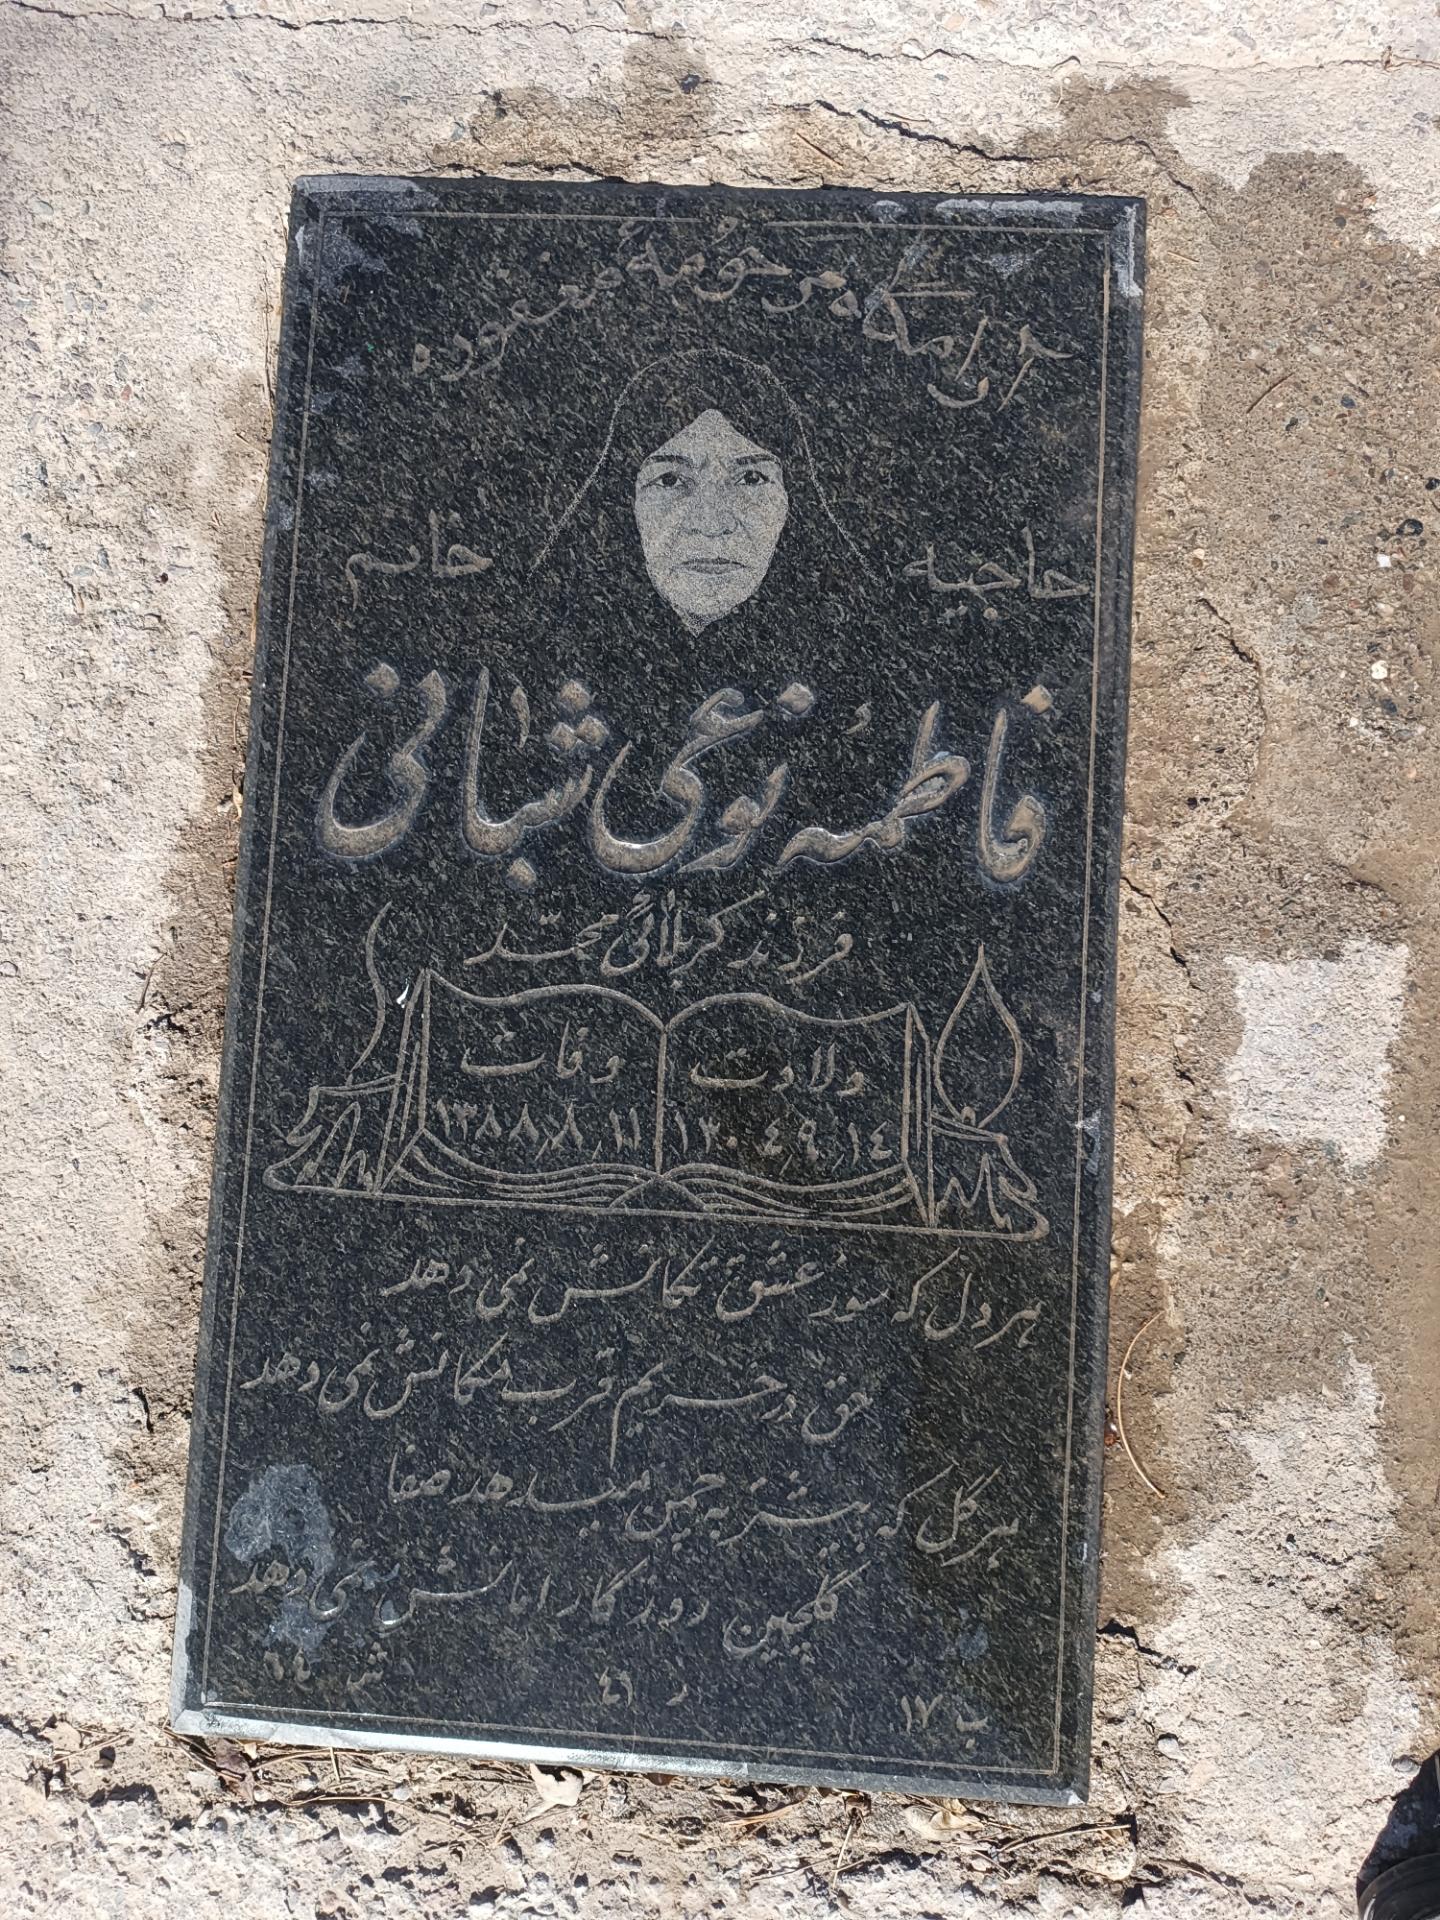 آرامگاه مرحومه مغفوره
حاجیه خانم
فاطمه نوعی شبانی
فرزند کربلائی محمد
ولادت وفات
۱۳۰۴٫۹٫۱۴ ۱۳۸۸٫۸٫۱۱
هر دل که سوز عشق تکانش نمی دهد
حق در حریم قرب مکانش نمی دهد
هر گل که بیشتر به چمن میدهد صفا
گلچین روزگار امانش نمی دهد
ب ۱۷ ر ۴۱ ش ۶۴